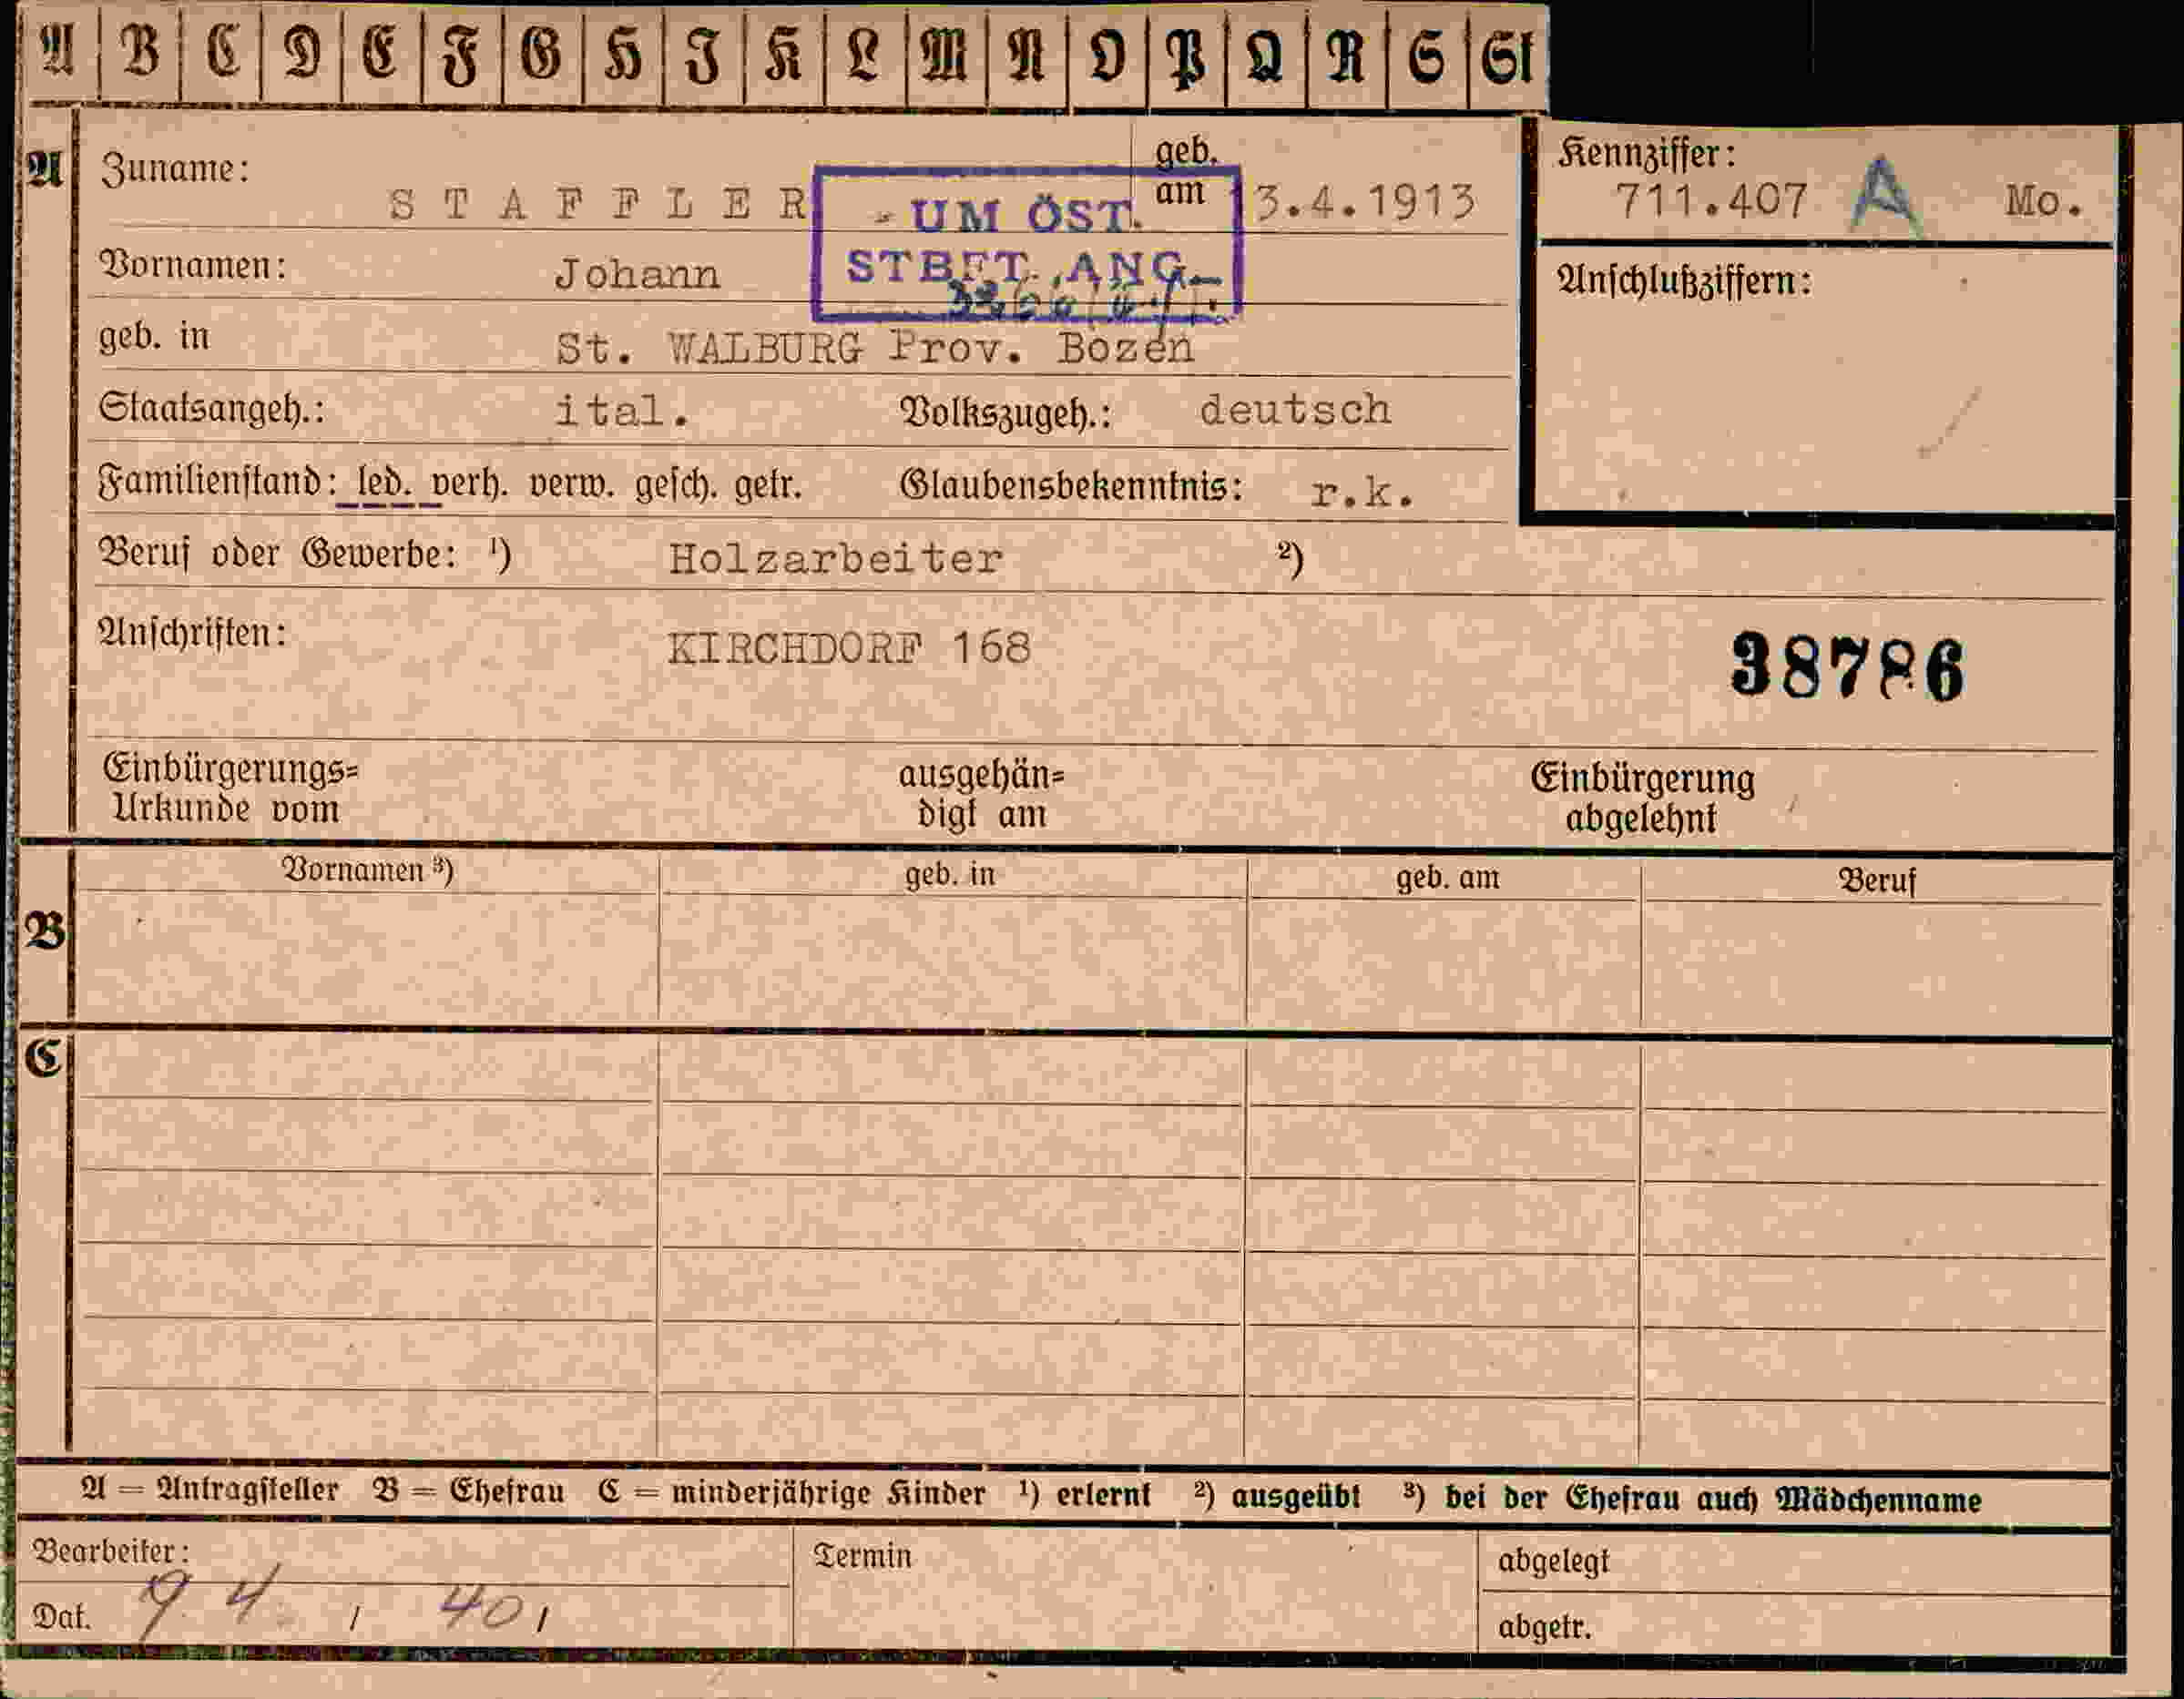 A B C D E F G H I K L M N O P Q R S St
A Zuname: STAFFLER geb. am 13.4.1913
Kennziffer: 711.407 A Mo.
UM ÖST.
STBFT. ANG.
Vornamen: Johann
Anschlußziffern:
geb. in St. WALBURG Prov. Bozen
Staatsangeh.: ital. Volkszugeh.: deutsch
Familienstand: led. verh. verw. gesch. getr. Glaubensbekenntnis: r.k.
Beruf oder Gewerbe: ¹) Holzarbeiter ²)
Anschriften: KIRCHDORF 168
38786
Einbürgerungs= ausgehän= Einbürgerung
Urkunde vom digt am abgelehnt
Vornamen ³) geb. in geb. am Beruf
B
C
A = Antragsteller B = Ehefrau C = minderjährige Kinder ¹) erlernt ²) ausgeübt ³) bei der Ehefrau auch Mädchenname
Bearbeiter: Termin abgelegt
Dat. 9. 4. 40 abgetr.